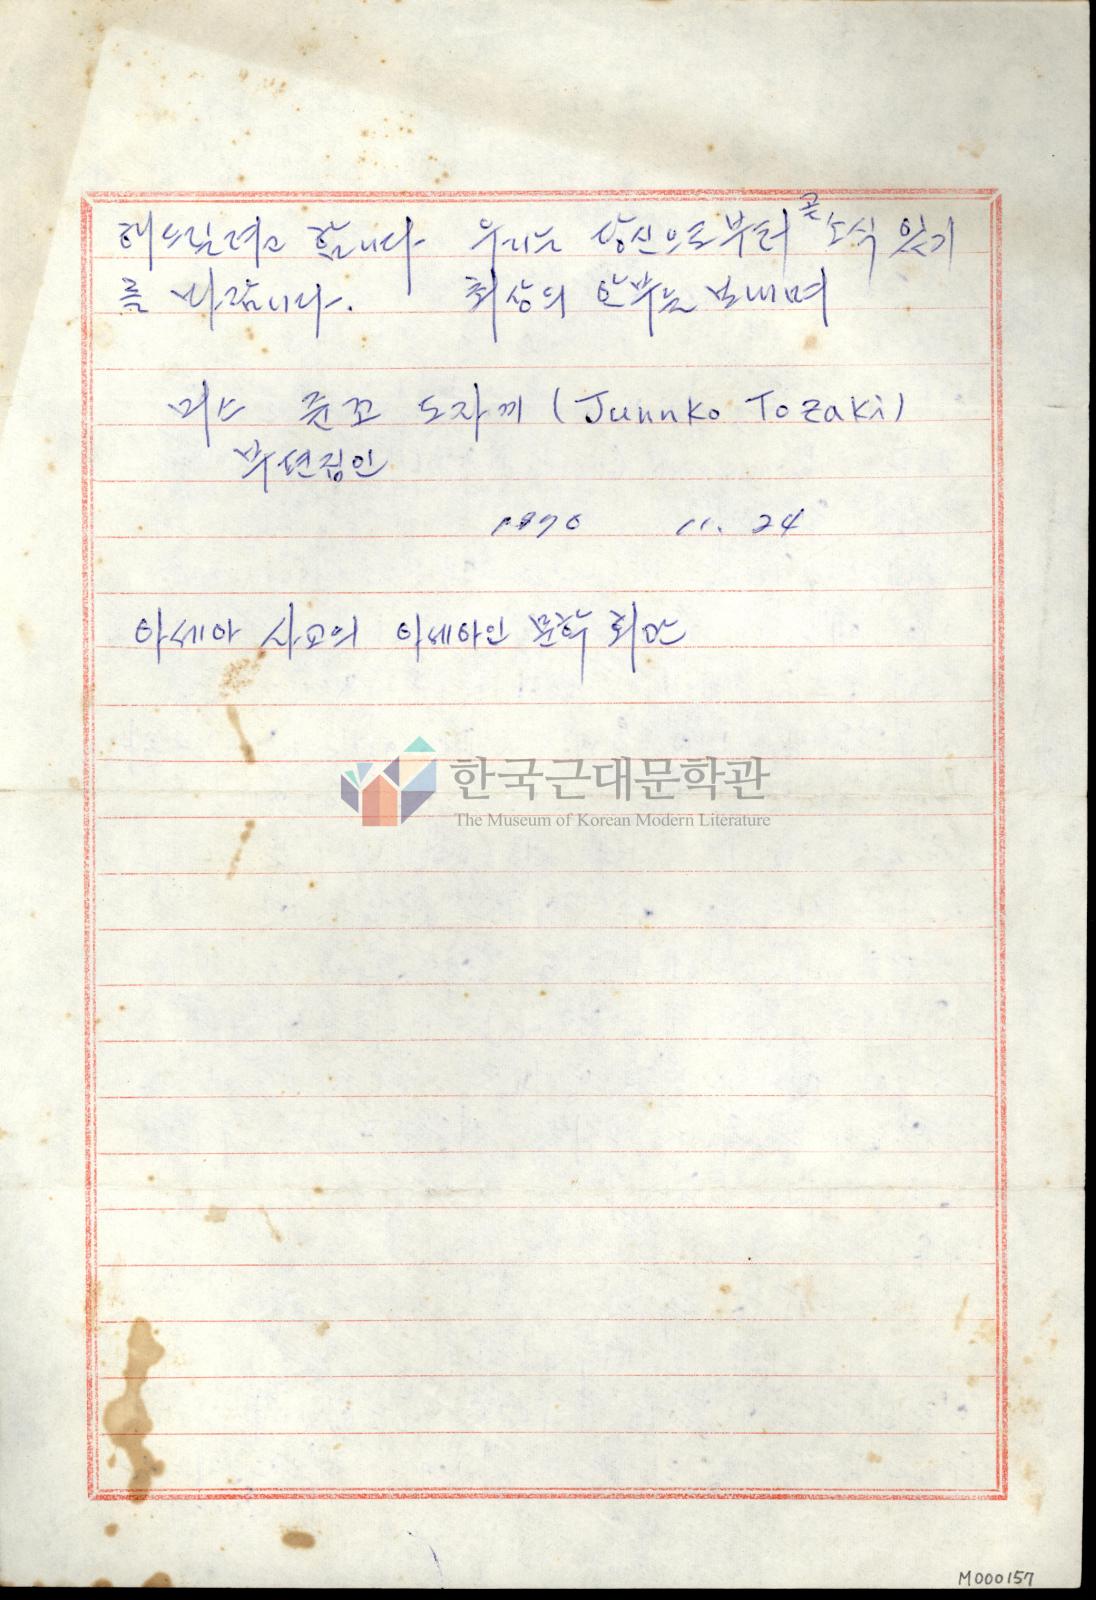 해드릴려고 합니다 우리는 당신으로부터 곧 소식 있기
를 바랍니다. 최상의 안부를 보내며
미스 쥰꼬 도자끼 (Junnko Tozaki)
부편집인
1970 11. 24
아세아 사고의 아세아인 문학 회관
한국근대문학관
The Museum of Korean Modern Literature
M000157